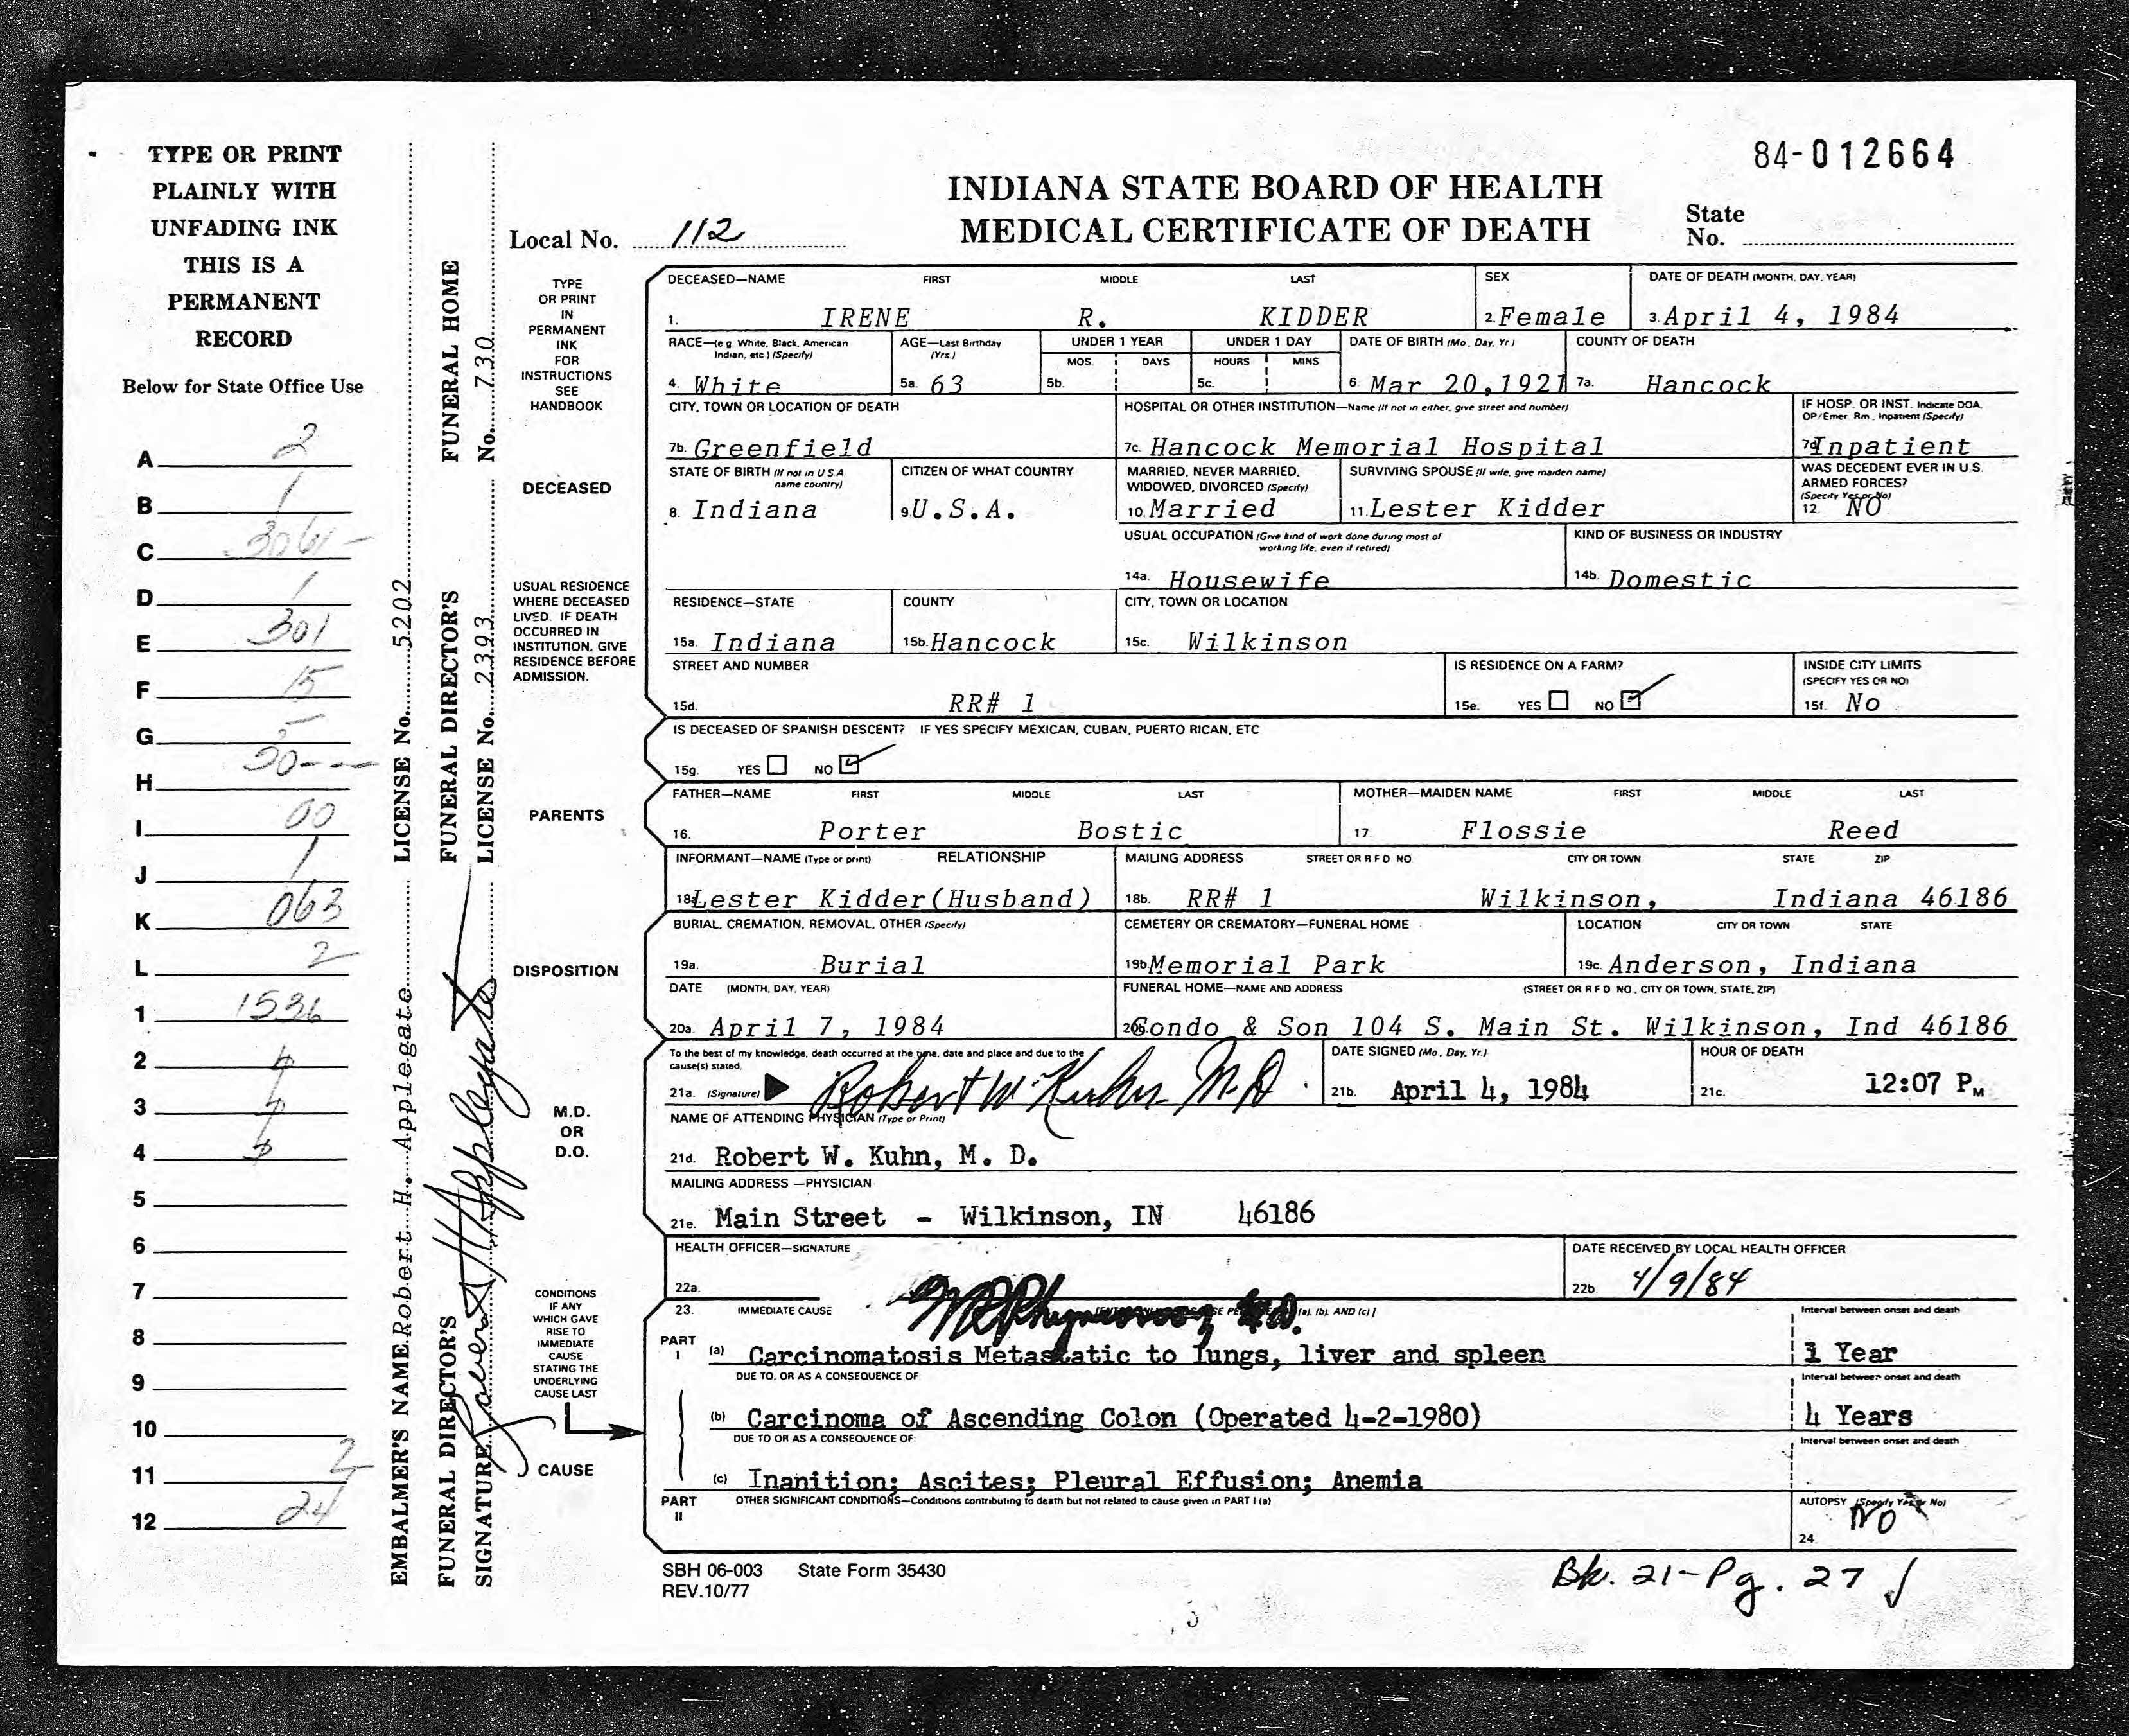 84-012664
INDIANA STATE BOARD OF HEALTH
MEDICAL CERTIFICATE OF DEATH
State No.
Local No. 112
TYPE OR PRINT
PLAINLY WITH
UNFADING INK
THIS IS A
PERMANENT
RECORD
Below for State Office Use
A 2
B 1
C
D 1
E 301
F 15
G
H
I 00
J 1
K 063
L 2
1 1536
2
3
4
5
6
7
8
9
10
11 2
12 24
EMBALMER'S NAME Robert H. Applegate LICENSE No. 5202
FUNERAL DIRECTOR'S FUNERAL DIRECTOR'S FUNERAL HOME
SIGNATURE Robert H Applegate LICENSE No. 2393 No. 730
TYPE
OR PRINT
IN
PERMANENT
INK
FOR
INSTRUCTIONS
SEE
HANDBOOK
DECEASED
USUAL RESIDENCE
WHERE DECEASED
LIVED. IF DEATH
OCCURRED IN
INSTITUTION, GIVE
RESIDENCE BEFORE
ADMISSION.
PARENTS
DISPOSITION
M.D.
OR
D.O.
CONDITIONS
IF ANY
WHICH GAVE
RISE TO
IMMEDIATE
CAUSE
STATING THE
UNDERLYING
CAUSE LAST
CAUSE
DECEASED—NAME FIRST MIDDLE LAST SEX DATE OF DEATH (MONTH, DAY, YEAR)
1. IRENE R. KIDDER 2. Female 3. April 4, 1984
RACE—(e g. White, Black, American Indian, etc.) (Specify) AGE—Last Birthday (Yrs.) UNDER 1 YEAR UNDER 1 DAY DATE OF BIRTH (Mo, Day, Yr) COUNTY OF DEATH
MOS. DAYS HOURS MINS
4. White 5a. 63 5b. 5c. 6. Mar 20,1921 7a. Hancock
CITY, TOWN OR LOCATION OF DEATH HOSPITAL OR OTHER INSTITUTION—Name (If not in either, give street and number) IF HOSP. OR INST. Indicate DOA, OP/Emer. Rm., Inpatient (Specify)
7b. Greenfield 7c. Hancock Memorial Hospital 7d. Inpatient
STATE OF BIRTH (If not in U S A name country) CITIZEN OF WHAT COUNTRY MARRIED, NEVER MARRIED, WIDOWED, DIVORCED (Specify) SURVIVING SPOUSE (If wife, give maiden name) WAS DECEDENT EVER IN U.S. ARMED FORCES? (Specify Yes or No)
8. Indiana 9. U.S.A. 10. Married 11. Lester Kidder 12. NO
USUAL OCCUPATION (Give kind of work done during most of working life, even if retired) KIND OF BUSINESS OR INDUSTRY
14a. Housewife 14b. Domestic
RESIDENCE—STATE COUNTY CITY, TOWN OR LOCATION
15a. Indiana 15b. Hancock 15c. Wilkinson
STREET AND NUMBER IS RESIDENCE ON A FARM? INSIDE CITY LIMITS (SPECIFY YES OR NO)
15d. RR# 1 15e. YES NO 15f. No
IS DECEASED OF SPANISH DESCENT? IF YES SPECIFY MEXICAN, CUBAN, PUERTO RICAN, ETC.
15g. YES NO
FATHER—NAME FIRST MIDDLE LAST MOTHER—MAIDEN NAME FIRST MIDDLE LAST
16. Porter Bostic 17. Flossie Reed
INFORMANT—NAME (Type or print) RELATIONSHIP MAILING ADDRESS STREET OR R F D NO CITY OR TOWN STATE ZIP
18a. Lester Kidder(Husband) 18b. RR# 1 Wilkinson, Indiana 46186
BURIAL, CREMATION, REMOVAL, OTHER (Specify) CEMETERY OR CREMATORY—FUNERAL HOME LOCATION CITY OR TOWN STATE
19a. Burial 19b Memorial Park 19c. Anderson, Indiana
DATE (MONTH, DAY, YEAR) FUNERAL HOME—NAME AND ADDRESS (STREET OR R F D NO., CITY OR TOWN, STATE, ZIP)
20a. April 7, 1984 20b. Condo & Son 104 S. Main St. Wilkinson, Ind 46186
To the best of my knowledge, death occurred at the time, date and place and due to the cause(s) stated. DATE SIGNED (Mo, Day, Yr.) HOUR OF DEATH
21a. (Signature) Robert W. Kuhn M.D. 21b. April 4, 1984 21c. 12:07 PM
NAME OF ATTENDING PHYSICIAN (Type or Print)
21d. Robert W. Kuhn, M. D.
MAILING ADDRESS—PHYSICIAN
21e. Main Street - Wilkinson, IN 46186
HEALTH OFFICER—SIGNATURE DATE RECEIVED BY LOCAL HEALTH OFFICER
22a. 22b. 4/9/84
23. IMMEDIATE CAUSE (a), (b), AND (c)] Interval between onset and death
PART I (a) Carcinomatosis Metastatic to lungs, liver and spleen 1 Year
DUE TO, OR AS A CONSEQUENCE OF: Interval between onset and death
(b) Carcinoma of Ascending Colon (Operated 4-2-1980) 4 Years
DUE TO OR AS A CONSEQUENCE OF: Interval between onset and death
(c) Inanition; Ascites; Pleural Effusion; Anemia
PART II OTHER SIGNIFICANT CONDITIONS—Conditions contributing to death but not related to cause given in PART I (a) AUTOPSY (Specify Yes or No)
24. NO
SBH 06-003 State Form 35430
REV.10/77
Bk. 21-Pg. 27